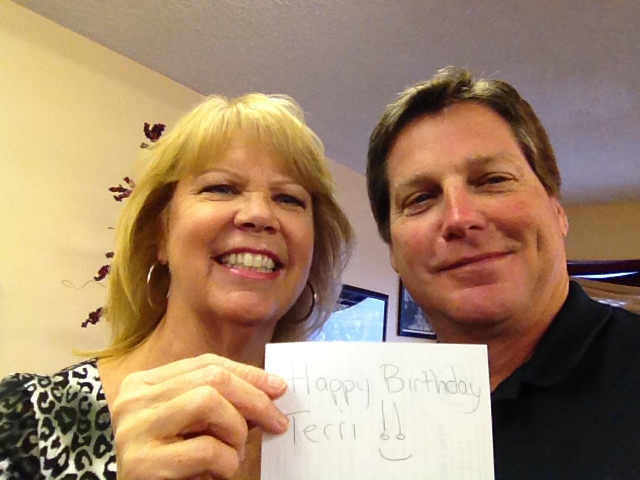 Happy Birthday
Terri !!